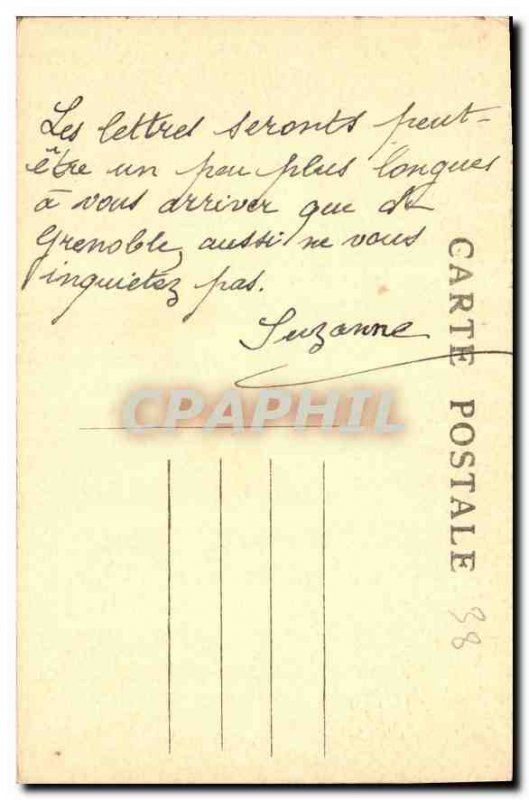 Les lettres seronts peut-
être un peu plus longues
à vous arriver que de
Grenoble, aussi ne vous
inquietez pas.
Suzanne
CPAPHIL
CARTE POSTALE
38